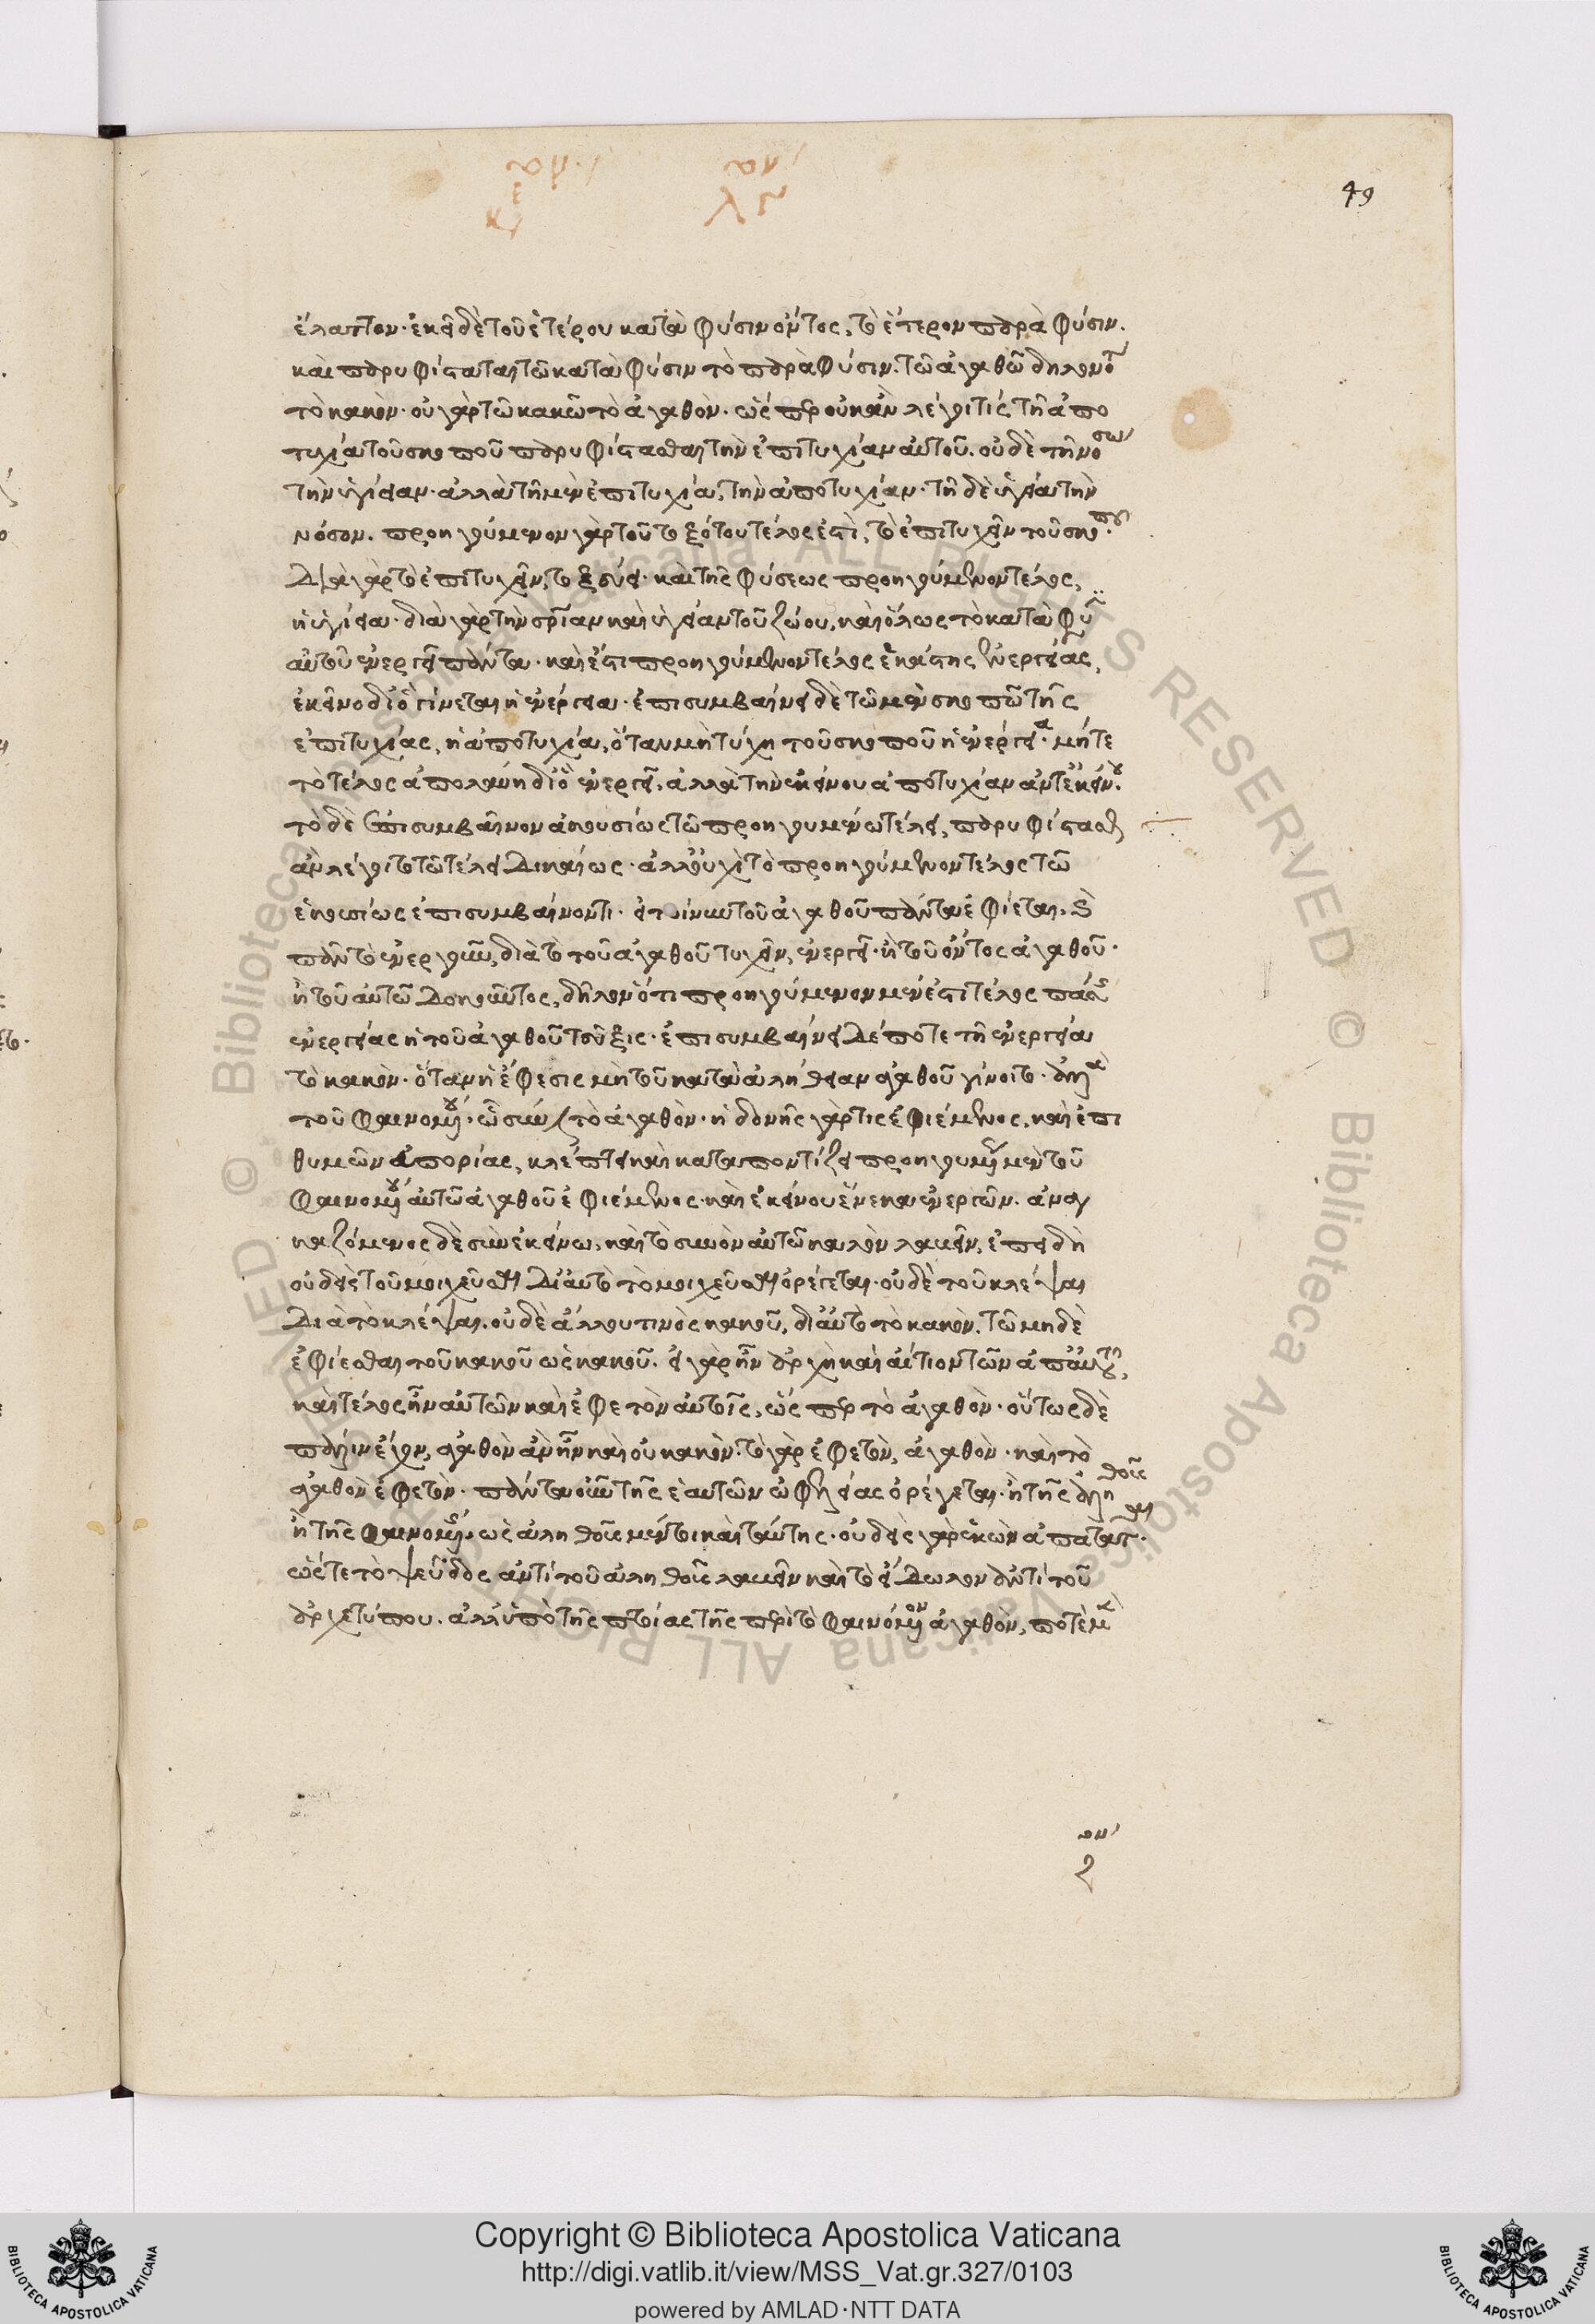 49
ἔλαττον· ἐκεῖ δὲ τοῦ ἑτέρου κατὰ φύσιν ὄντος, τὸ ἕτερον παρὰ φύσιν.
καὶ παρυφίσταται τῶ κατὰ φύσιν τὸ παρὰ φύσιν. τῶ ἀγαθῶ δηλονότι
τὸ κακὸν· οὐ γὰρ τῶ κακῶ τὸ ἀγαθὸν. ὥσπερ οὐκ ἂν λέγοι τίς τῆ ἀπο
τυχία τοῦ σκοποῦ παρυφίστασθαι τὴν ἐπιτυχίαν αὐτοῦ. οὐδὲ τῆ νόσω
τὴν ὑγίειαν. ἀλλὰ τῆ μὲν ἐπιτυχία, τὴν ἀποτυχίαν. τῆ δὲ ὑγεία τὴν
νόσον. προηγούμενον γὰρ τοῦ τοξότου τέλος ἐστὶ, τὸ ἐπιτυχεῖν τοῦ σκοποῦ.
διὰ γὰρ τὸ ἐπιτυχεῖν, τοξεύει. καὶ τῆς φύσεως προηγούμενον τέλος,
ἡ ὑγίεια· διὰ γὰρ τὴν σωτηρίαν καὶ ὑγείαν τοῦ ζώου, καὶ ὅλως τὸ κατὰ φύσιν
αὐτοῦ ἐνεργεῖ πάντα. καὶ ἔστι προηγούμενον τέλος ἑκάστης ἐνεργείας,
ἐκεῖνο δι' ὃ γίνεται ἡ ἐνέργεια. ἐπισυμβαίνει δὲ τῶ μὲν σκοπῶ τῆς
ἐπιτυχίας, ἡ ἀποτυχία, ὅταν μὴ τύχη τοῦ σκοποῦ ἡ ἐνέργεια. μήτε
τὸ τέλος ἀπολαύη δι' ὃ ἐνεργεῖ, ἀλλὰ τὴν ἐκείνου ἀποτυχίαν ἀντ' ἐκείνου.
τὸ δὲ ἐπισυμβαῖνον ἀκουσίως τῶ προηγουμένω τέλει, παρυφίστασθαι
ἂν λέγοιτο τῶ τέλει δικαίως. ἀλλ' οὐχὶ τὸ προηγούμενον τέλος τῶ
ἑκουσίως ἐπισυμβαίνοντι. εἰ τοίνυν τοῦ ἀγαθοῦ πάντα ἐφίεται, καὶ
πᾶν τὸ ἐνεργοῦν, διὰ τὸ τοῦ ἀγαθοῦ τυχεῖν, ἐνεργεῖ. ἢ τοῦ ὄντος ἀγαθοῦ.
ἢ τοῦ αὐτῶ δοκοῦντος, δῆλον ὅτι προηγούμενον μέν ἐστι τέλος πάσης
ἐνεργείας ἡ τοῦ ἀγαθοῦ τεῦξις. ἐπισυμβαίνει δέ ποτε τῆ ἐνεργεία
τὸ κακὸν. ὅταν ἡ ἔφεσις μὴ τοῦ κατὰ ἀλήθειαν ἀγαθοῦ γίνοιτο. ἀλλὰ
τοῦ φαινομένου, ὧ σύνεστι τὸ ἀγαθὸν. ἡδονῆς γάρ τις ἐφιέμενος, καὶ ἐπι
θυμῶν ἀπορίας, κλέπτει καὶ καταποντίζει προηγουμένως μὲν τοῦ
φαινομένου αὐτῶ ἀγαθοῦ ἐφιέμενος. καὶ ἐκείνου ἕνεκα ἐνεργῶν. ἀναγ
καζόμενος δὲ σὺν ἐκείνω, καὶ τὸ συνὸν αὐτῶ κακὸν λαβεῖν, ἐπειδὴ
οὐδεὶς τοῦ μοιχεῦσαι δι' αὐτὸ τὸ μοιχεῦσαι ὀρέγεται. οὐδὲ τοῦ κλέψαι
διὰ τὸ κλέψαι. οὐδὲ ἄλλου τινὸς κακοῦ, δι' αὐτὸ τὸ κακὸν. τῶ μηδὲ
ἐφίεσθαι τοῦ κακοῦ ὡς κακοῦ. εἰ γὰρ ἦν ἀρχὴ καὶ αἴτιον τῶν ἁπάντων,
καὶ τέλος ἦν αὐτῶν καὶ ἐφετὸν αὐτοῖς, ὥσπερ τὸ ἀγαθὸν. οὕτως δὲ
πάλιν ἔχον, ἀγαθὸν ἂν ἦν καὶ οὐ κακὸν. τὸ γὰρ ἐφετὸν, ἀγαθὸν. καὶ τὸ
ἀγαθὸν ἐφετὸν. πάντα οὖν τῆς ἑαυτῶν ὠφελείας ὀρέγεται. ἢ τῆς ἀληθοῦς
ἢ τῆς φαινομένης, ὡς ἀληθοῦς μέντοι καὶ ταύτης. οὐδεὶς γὰρ ἑκὼν ἀπατᾶται.
ὥστε τὸ ψεῦδος ἀντὶ τοῦ ἀληθοῦς λαβεῖν καὶ τὸ εἴδωλον ἀντὶ τοῦ
ἀρχετύπου. ἀλλ' ὑπὸ τῆς πτοίας τῆς περὶ τὸ φαινόμενον ἀγαθὸν, ποτὲ μὲν
Copyright © Biblioteca Apostolica Vaticana
http://digi.vatlib.it/view/MSS_Vat.gr.327/0103
powered by AMLAD·NTT DATA